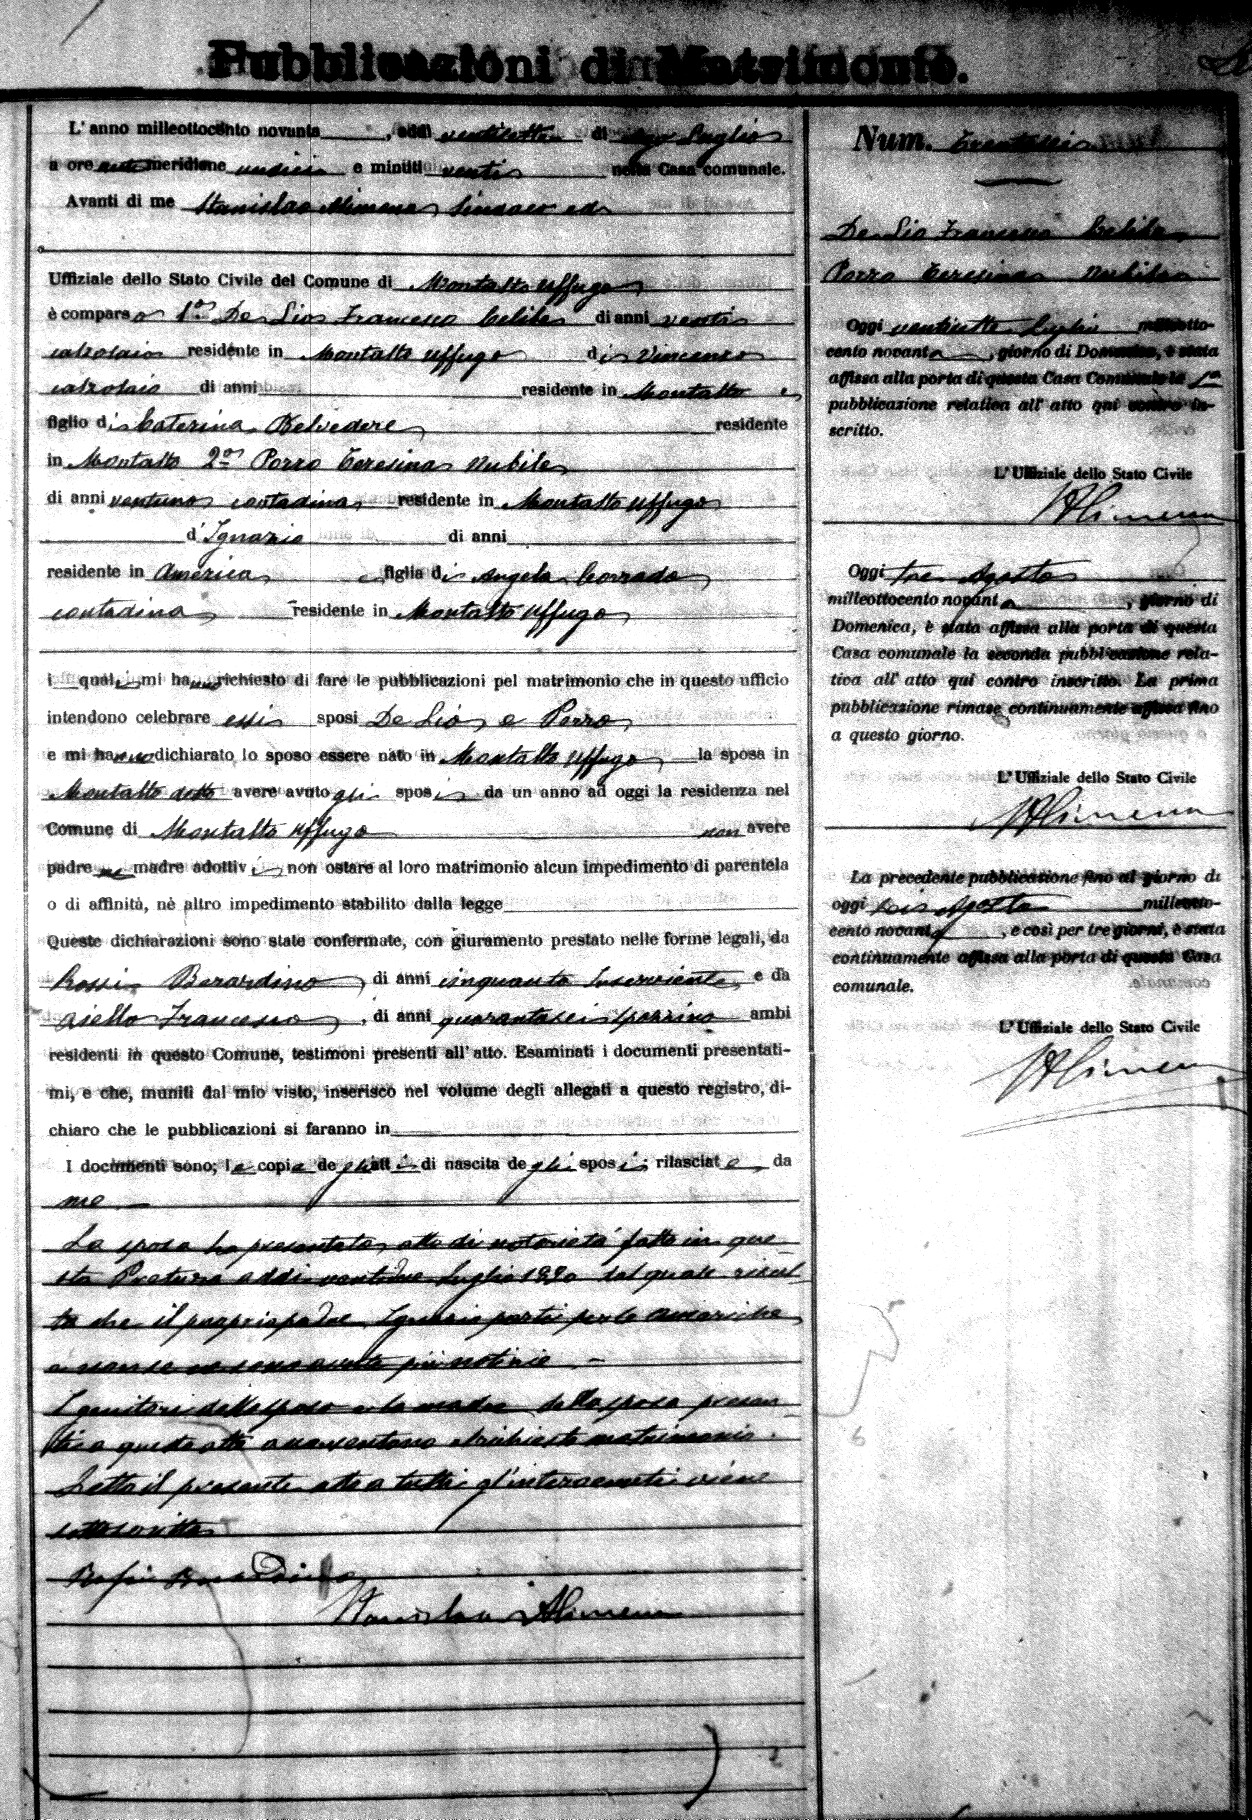 Pubblicazioni di Matrimonio.
L'anno milleottocento novanta, addì ventisette di Luglio
a ore meridiane undici e minuti venti nella Casa comunale.
Avanti di me Stanislao Alimena Sindaco ed
Uffiziale dello Stato Civile del Comune di Montalto Uffugo
è comparso 1o De Lio Francesco Celibe di anni venti
calzolaio residente in Montalto Uffugo di Vincenzo
calzolaio di anni residente in Montalto e
figlio di Caterina Belvedere residente
in Montalto 2o Porro Teresina nubile
di anni ventuno contadina residente in Montalto Uffugo
d'Ignazio di anni
residente in America e figlia di Angela Corrado
contadina residente in Montalto Uffugo
i quali mi hanno richiesto di fare le pubblicazioni pel matrimonio che in questo ufficio
intendono celebrare essi sposi De Lio e Porro
e mi hanno dichiarato lo sposo essere nato in Montalto Uffugo la sposa in
Montalto detto avere avuto gli sposi da un anno ad oggi la residenza nel
Comune di Montalto Uffugo non avere
padre ne madre adottivi non ostare al loro matrimonio alcun impedimento di parentela
o di affinità, nè altro impedimento stabilito dalla legge
Queste dichiarazioni sono state confermate, con giuramento prestato nelle forme legali, da
Rossi Berardino, di anni cinquanta Inserviente e da
Aiello Francesco, di anni quarantasei spazzino ambi
residenti in questo Comune, testimoni presenti all'atto. Esaminati i documenti presentati-
mi, e che, muniti dal mio visto, inserisco nel volume degli allegati a questo registro, di-
chiaro che le pubblicazioni si faranno in
I documenti sono; le copie degli atti di nascita degli sposi rilasciate da
me
La sposa ha presentato atto di notorietà fatto in que-
sta Pretura addì ventidue Luglio 1890 dal quale risul-
ta che il proprio padre Ignazio partì per le Americhe
e non se ne sono avute più notizie.
I genitori dello sposo e la madre della sposa presen-
ti a questo atto acconsentono al richiesto matrimonio.
Letto il presente atto a tutti gl'intervenuti viene
sottoscritto
Rossi Berardino
Stanislao Alimena
Num. Trentasei
De Lio Francesco Celibe
Porro Teresina nubile
Oggi ventisette Luglio milleotto-
cento novanta, giorno di Domenica, è stata
affissa alla porta di questa Casa Comunale la 1a
pubblicazione relativa all'atto qui contro in-
scritto.
L'Uffiziale dello Stato Civile
SAlimena
Oggi tre Agosto
milleottocento novanta, giorno di
Domenica, è stata affissa alla porta di questa
Casa comunale la seconda pubblicazione rela-
tiva all'atto qui contro inscritto. La prima
pubblicazione rimase continuamente affissa fino
a questo giorno.
L'Uffiziale dello Stato Civile
SAlimena
La precedente pubblicazione fino al giorno di
oggi sei Agosto milleotto-
cento novanta, e così per tre giorni, è stata
continuamente affissa alla porta di questa Casa
comunale.
L'Uffiziale dello Stato Civile
SAlimena